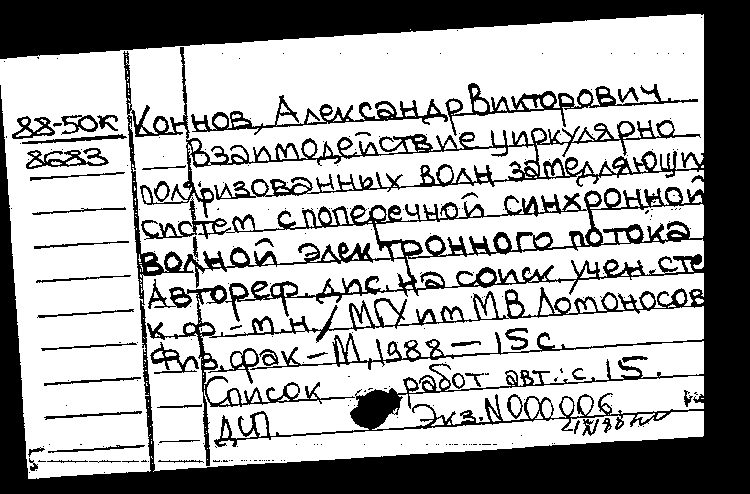 88-50К Коннов, Александр Викторович.
8683 Взаимодействие циркулярно
поляризованных волн замедляющих
систем с поперечной синхронной
волной электронного потока
Автореф. дис. на соиск. учен. сте
к. ф.-м.н. / МГУ им М.В. Ломоносов
Физ. фак - М, 1988 - 15 с.
Список работ авт.: с. 15.
ДСП. Экз. N 000006.